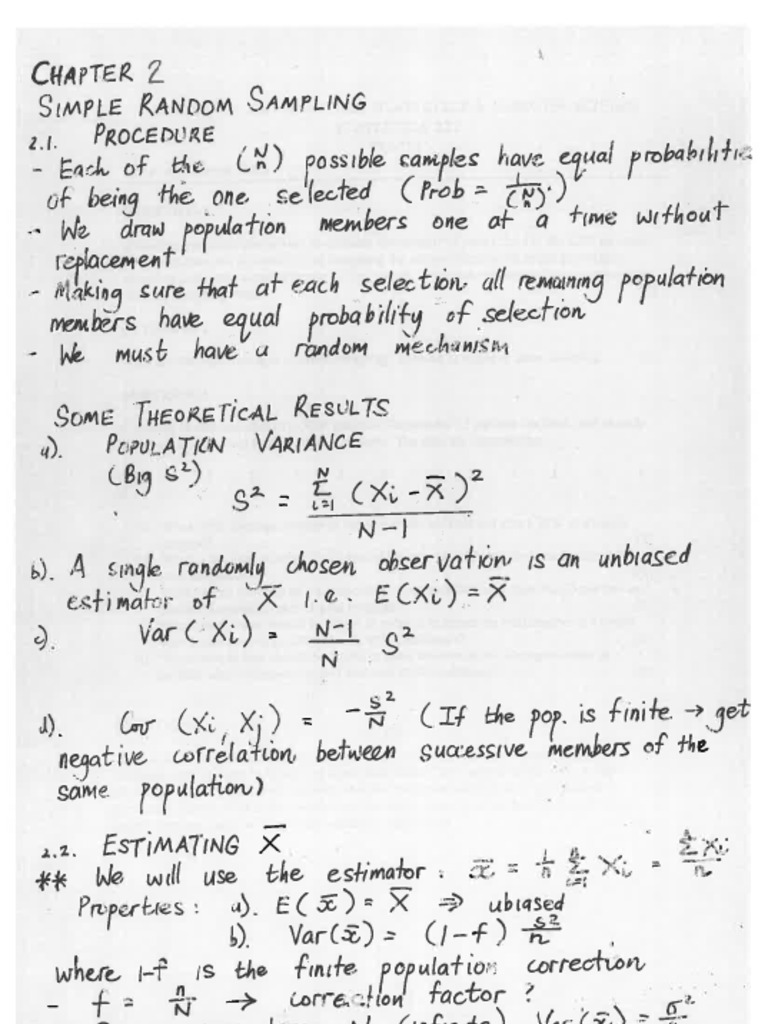 CHAPTER 2
SIMPLE RANDOM SAMPLING
2.1. PROCEDURE
- Each of the (N n) possible samples have equal probabilitie
of being the one selected (Prob = 1/(N n).)
- We draw population members one at a time without
replacement
- Making sure that at each selection all remaining population
members have equal probability of selection
- We must have a random mechanism
SOME THEORETICAL RESULTS
a). POPULATION VARIANCE
(Big S²)
S² = Σ_{i=1}^{N} (Xi - X̄)² / N-1
b). A single randomly chosen observation is an unbiased
estimator of X̄ i.e. E(Xi) = X̄
c). Var (Xi) = N-1/N S²
d). Cov (Xi, Xj) = -S²/N (If the pop. is finite → get
negative correlation between successive members of the
same population)
2.2. ESTIMATING X̄
** We will use the estimator: x̄ = 1/n Σ_{i=1}^{n} Xi = Σ Xi/n
Properties: a). E(x̄) = X̄ ⇒ ubiased
b). Var(x̄) = (1-f) S²/n
where 1-f is the finite population correction
- f = n/N → correction factor ?
(infinite) Var(x̄) = σ²